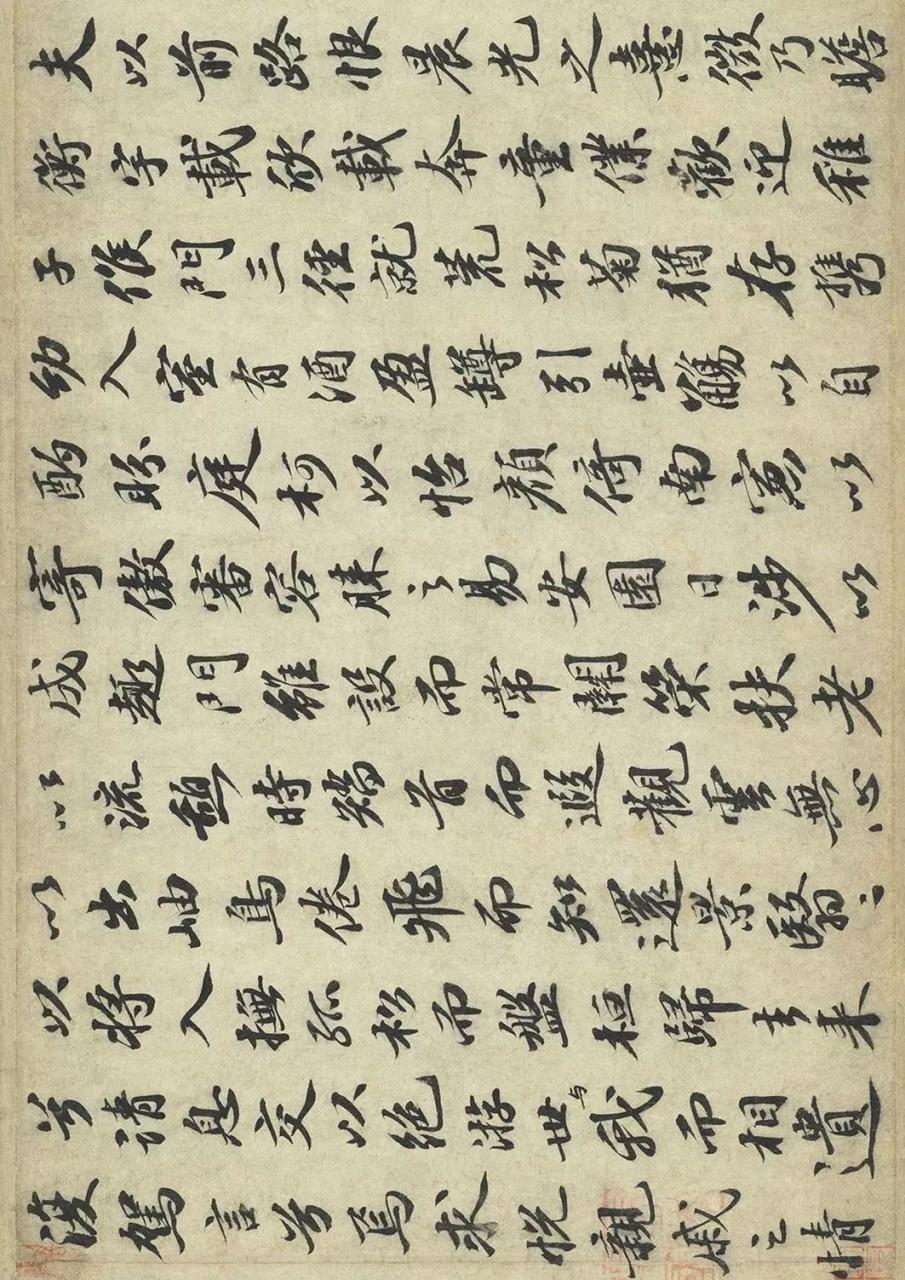 夫以前路恨晨光之熹微乃瞻
衡宇載欣載奔童僕歡迎稚
子候門三徑就荒松菊猶存携
幼入室有酒盈罇引壺觴以自
酌眄庭柯以怡顏倚南窓以
寄傲審容膝之易安園日涉以
成趣門雖設而常關策扶老
以流憩時矯首而遐觀雲無心
以出岫鳥倦飛而知還景翳〻
以將入撫孤松而盤桓歸去来
兮請息交以絕游世与我而相遺
復駕言兮焉求悅親戚之情